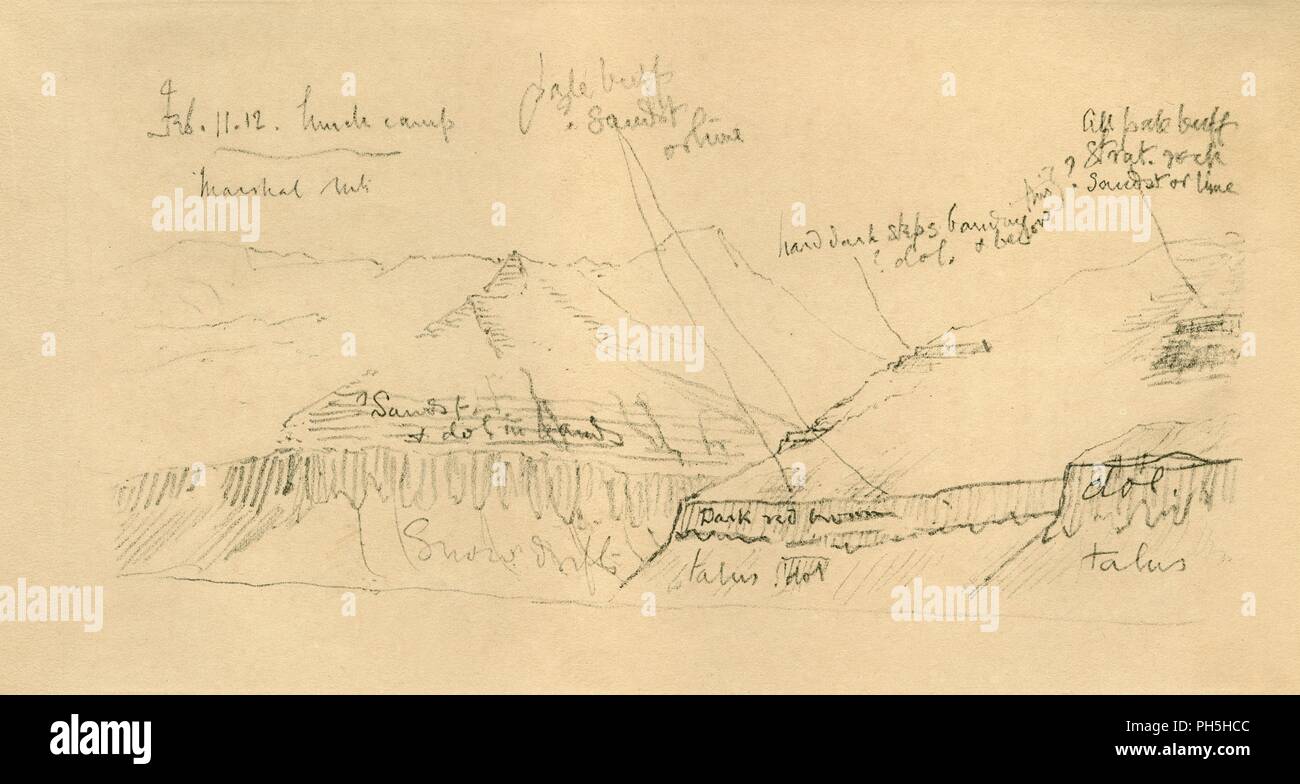 Feb. 11. 12. Lunch camp
Marshal Mts
pale buff
? Sandst
or lime
All pale buff
Strat. rock
Sandst or lime
?
hard dark steps banding
? dol.
? Sandst.
& dol in bands
Dark red brown
dol
Snow drifts
talus
dol
talus
alamy
alamy
Image ID: PH5HCC
www.alamy.com